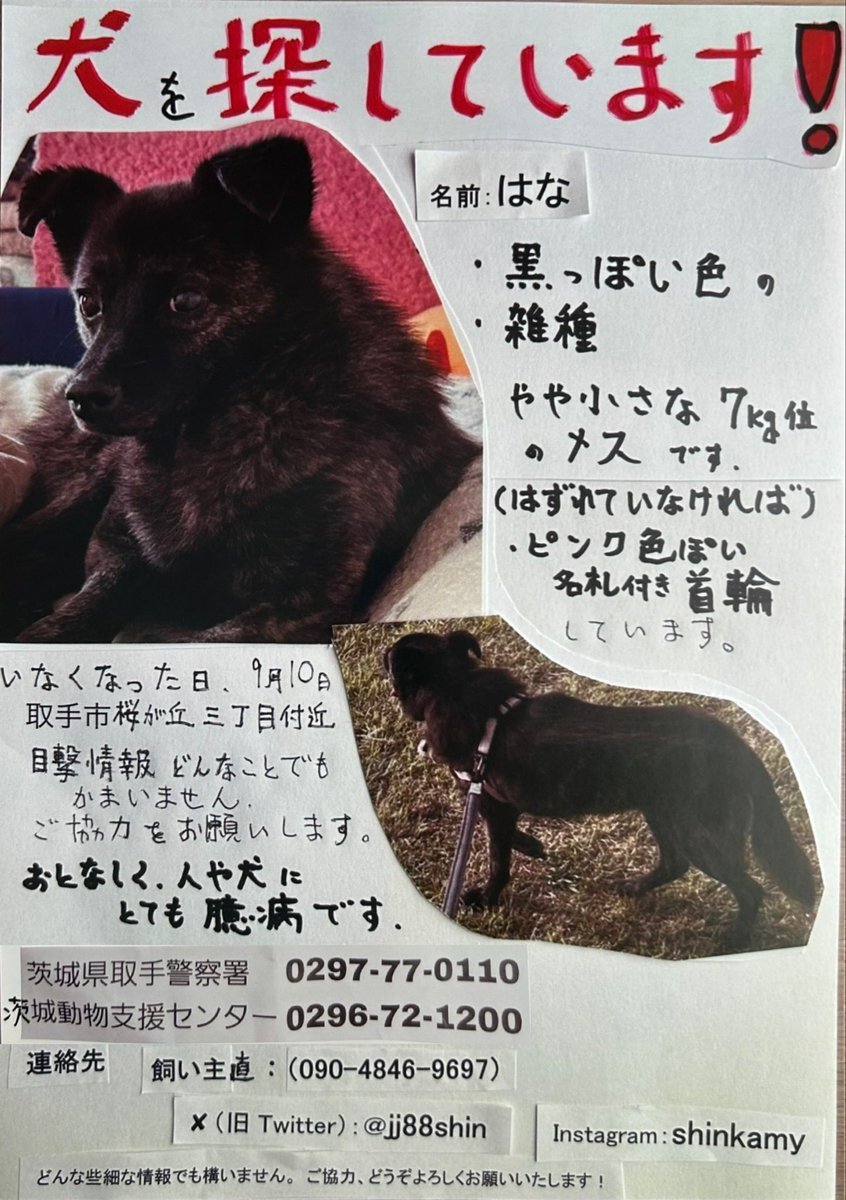 犬を探しています!
名前：はな
・黒っぽい色の
・雑種
やや小さな7kg位
のメスです.
(はずれていなければ)
・ピンク色ぽい
名札付き首輪
しています。
いなくなった日、9月10日
取手市桜が丘三丁目付近
目撃情報どんなことでも
かまいません.
ご協力をお願いします。
おとなしく、人や犬に
とても臆病です.
茨城県取手警察署 0297-77-0110
茨城動物支援センター 0296-72-1200
連絡先 飼い主直：(090-4846-9697)
✘(旧 Twitter)：@jj88shin
Instagram：shinkamy
どんな些細な情報でも構いません。ご協力、どうぞよろしくお願いいたします！